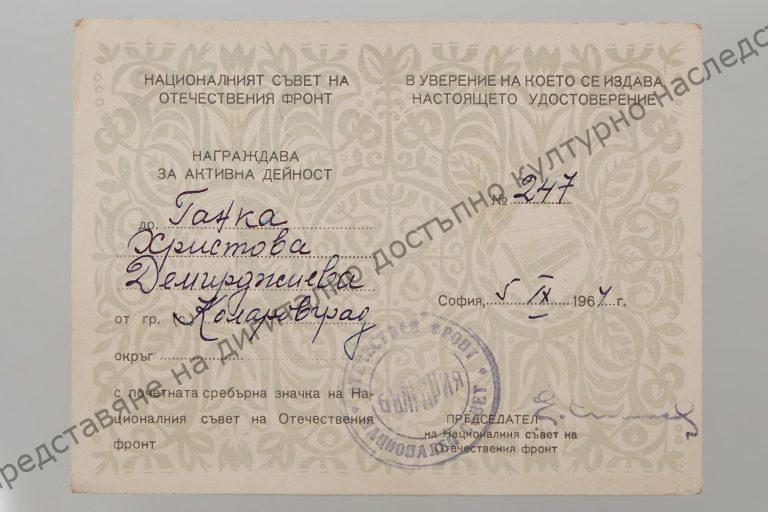 НАЦИОНАЛНИЯТ СЪВЕТ НА
ОТЕЧЕСТВЕНИЯ ФРОНТ
НАГРАЖДАВА
ЗА АКТИВНА ДЕЙНОСТ
др. Ганка
Христова
Демирджиева
от гр. Коларовград
окръг
с почетната сребърна значка на На-
ционалния съвет на Отечествения
фронт
В УВЕРЕНИЕ НА КОЕТО СЕ ИЗДАВА
НАСТОЯЩЕТО УДОСТОВЕРЕНИЕ
№ 247
София, 5 IX 1964 г.
ПРЕДСЕДАТЕЛ
на Националния съвет на
Отечествения фронт
ОТЕЧЕСТВЕН ФРОНТ * НАЦИОНАЛЕН СЪВЕТ *
БЪЛГАРИЯ
представяне на дигитално достъпно културно наследст